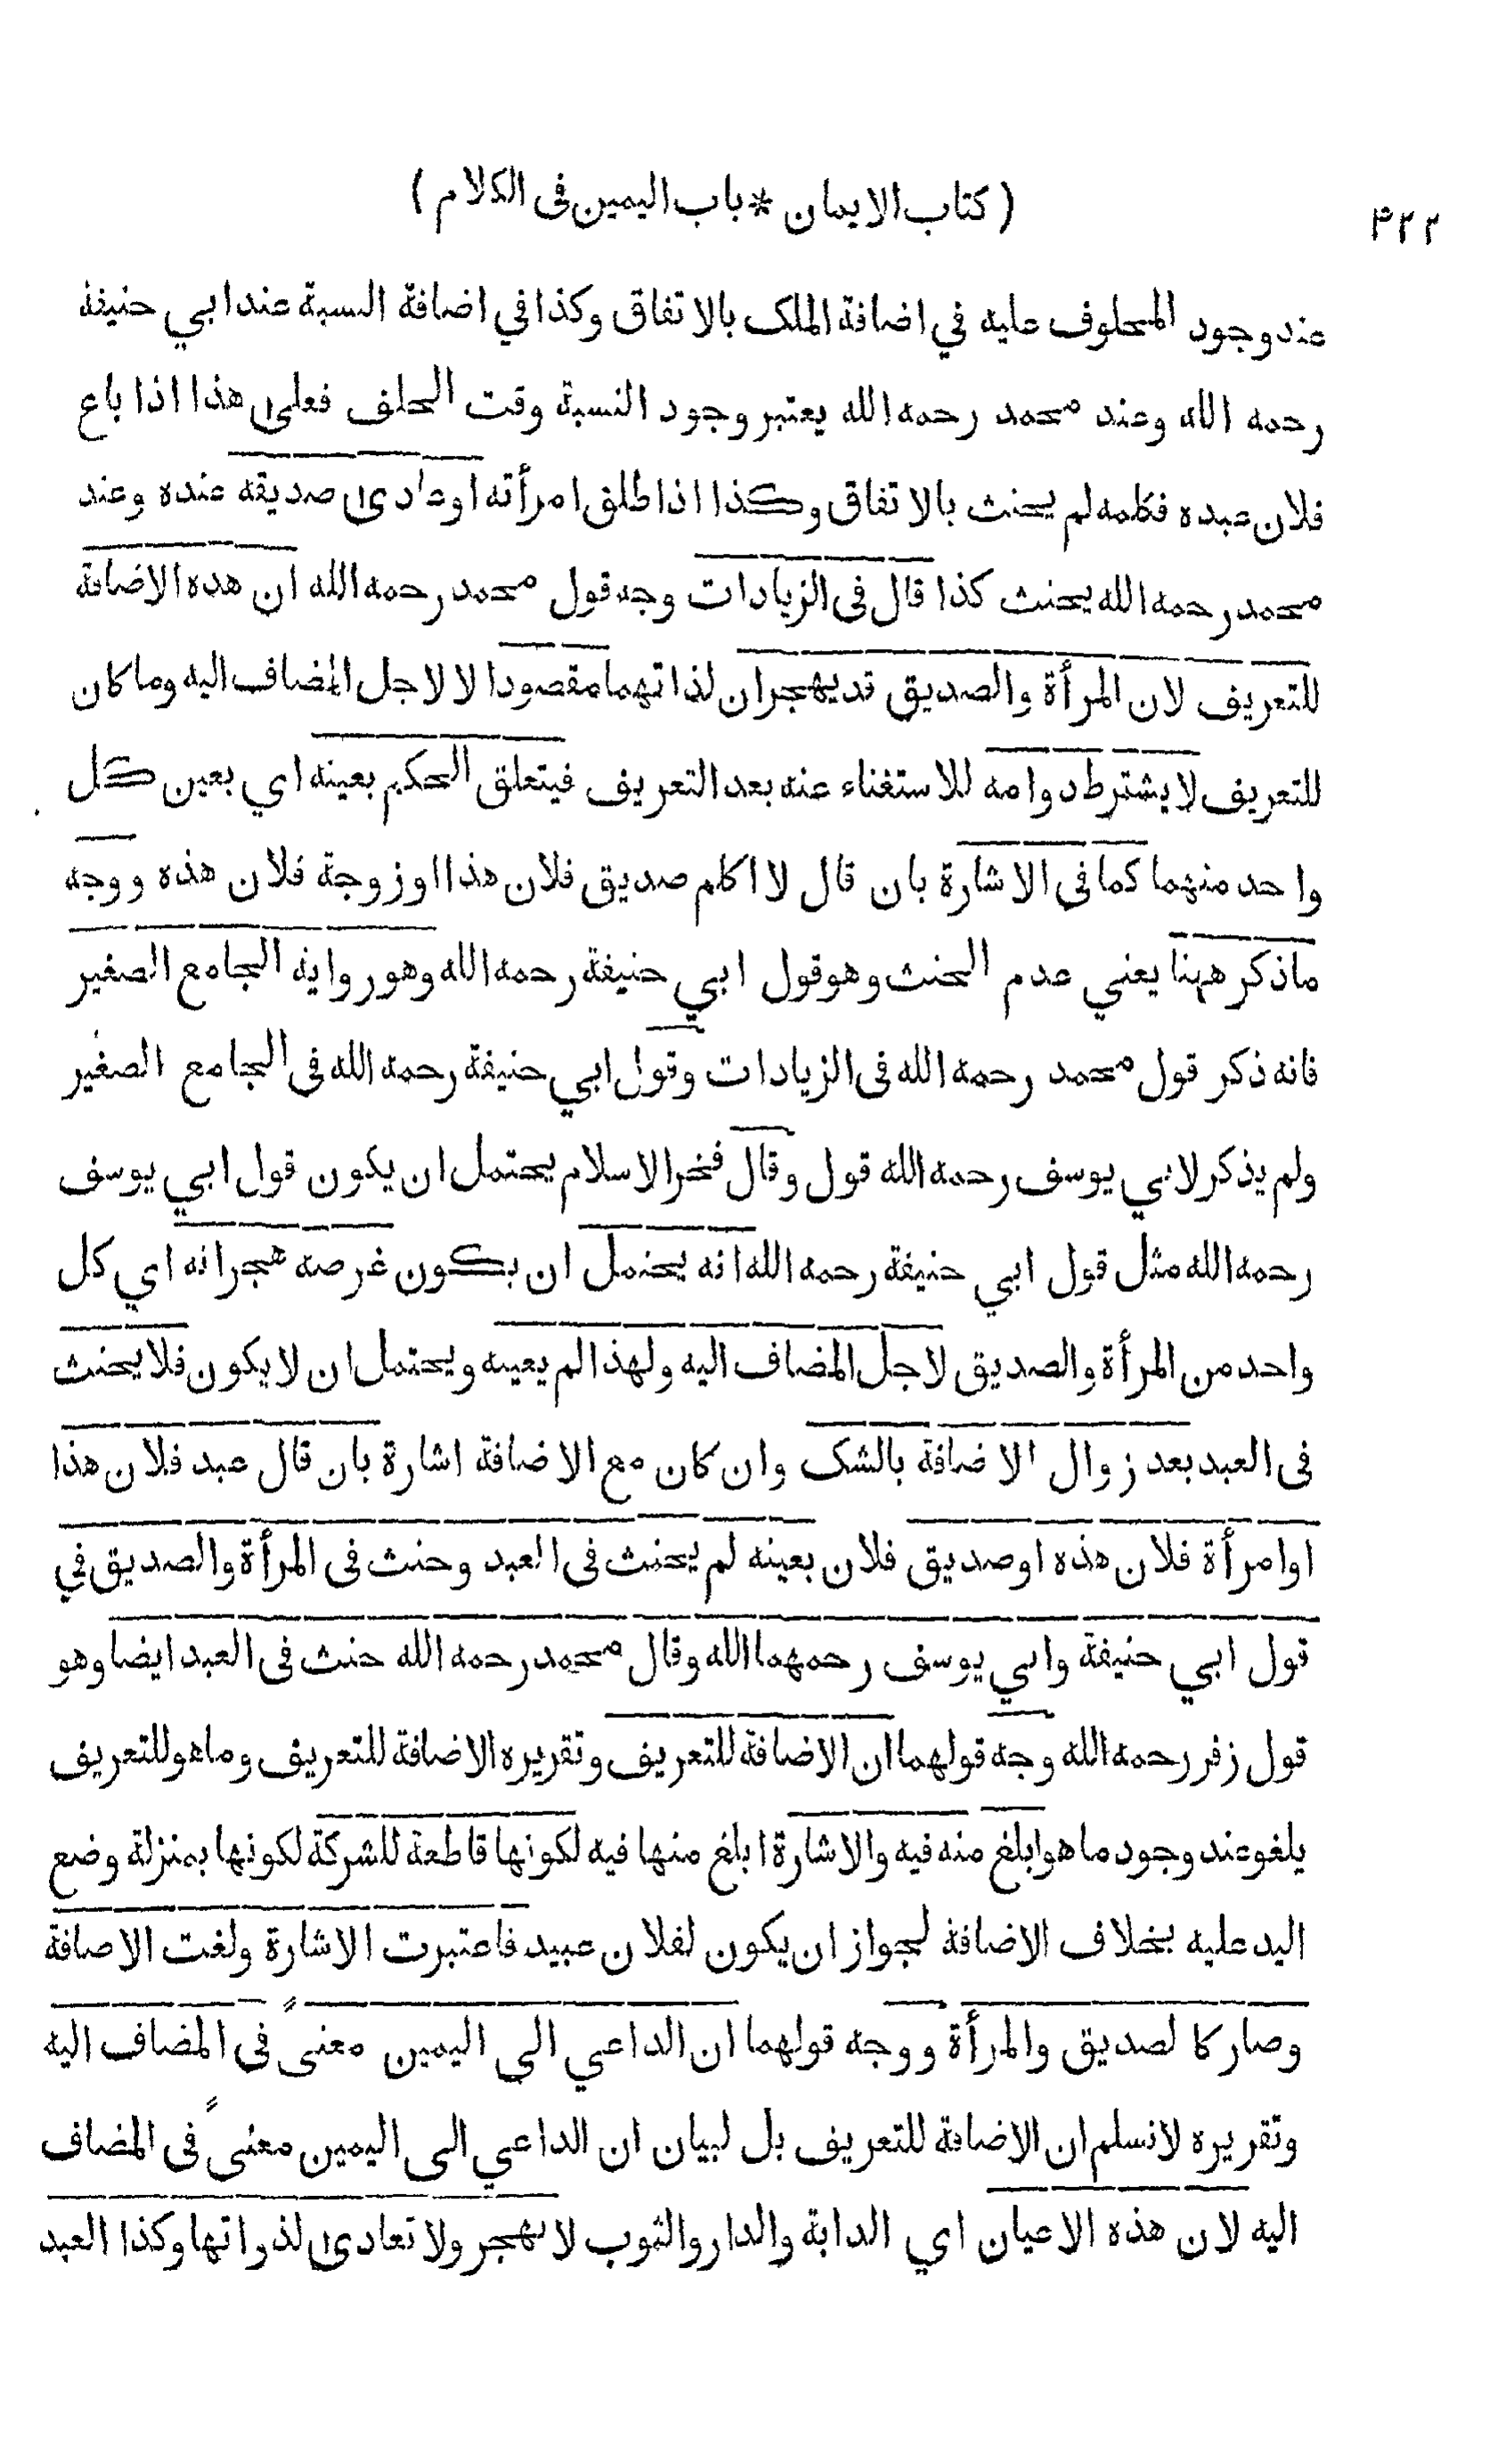 ۴۲۲
( كتاب الايمان * باب اليمين فى الكلام )
عند وجود المحلوف عليه في اضافة الملك بالاتفاق وكذا في اضافة النسبة عند ابي حنيفة
رحمه الله وعند محمد رحمه الله يعتبر وجود النسبة وقت الحلف فعلى هذا اذا باع
فلان عبده فكلمه لم يحنث بالاتفاق وكذا اذا طلق امرأته او عادى صديقه عنده وعند
محمد رحمه الله يحنث كذا قال فى الزيادات وجه قول محمد رحمه الله ان هذه الاضافة
للتعريف لان المرأة والصديق قد يهجران لذاتهما مقصودا لا لاجل المضاف اليه وما كان
للتعريف لا يشترط دوامه للاستغناء عنه بعد التعريف فيتعلق الحكم بعينه اي بعين كل
واحد منهما كما فى الاشارة بان قال لا اكلم صديق فلان هذا او زوجة فلان هذه ووجه
ما ذكر ههنا يعني عدم الحنث وهو قول ابي حنيفة رحمه الله وهو رواية الجامع الصغير
فانه ذكر قول محمد رحمه الله فى الزيادات وقول ابي حنيفة رحمه الله فى الجامع الصغير
ولم يذكر لابي يوسف رحمه الله قول وقال فخر الاسلام يحتمل ان يكون قول ابي يوسف
رحمه الله مثل قول ابي حنيفة رحمه الله انه يحتمل ان يكون غرضه هجرانه اي كل
واحد من المرأة والصديق لاجل المضاف اليه ولهذا لم يعينه ويحتمل ان لا يكون فلا يحنث
فى العبد بعد زوال الاضافة بالشك وان كان مع الاضافة اشارة بان قال عبد فلان هذا
او امرأة فلان هذه او صديق فلان بعينه لم يحنث فى العبد وحنث فى المرأة والصديق في
قول ابي حنيفة وابي يوسف رحمهما الله وقال محمد رحمه الله حنث فى العبد ايضا وهو
قول زفر رحمه الله وجه قولهما ان الاضافة للتعريف وتقريره الاضافة للتعريف وما هو للتعريف
يلغو عند وجود ما هو ابلغ منه فيه والاشارة ابلغ منها فيه لكونها قاطعة للشركة لكونها بمنزلة وضع
اليد عليه بخلاف الاضافة لجواز ان يكون لفلان عبيد فاعتبرت الاشارة ولغت الاضافة
وصار كالصديق والمرأة ووجه قولهما ان الداعي الى اليمين معنىً فى المضاف اليه
وتقريره لا نسلم ان الاضافة للتعريف بل لبيان ان الداعي الى اليمين معنىً فى المضاف
اليه لان هذه الاعيان اي الدابة والدار والثوب لا تهجر ولا تعادى لذواتها وكذا العبد